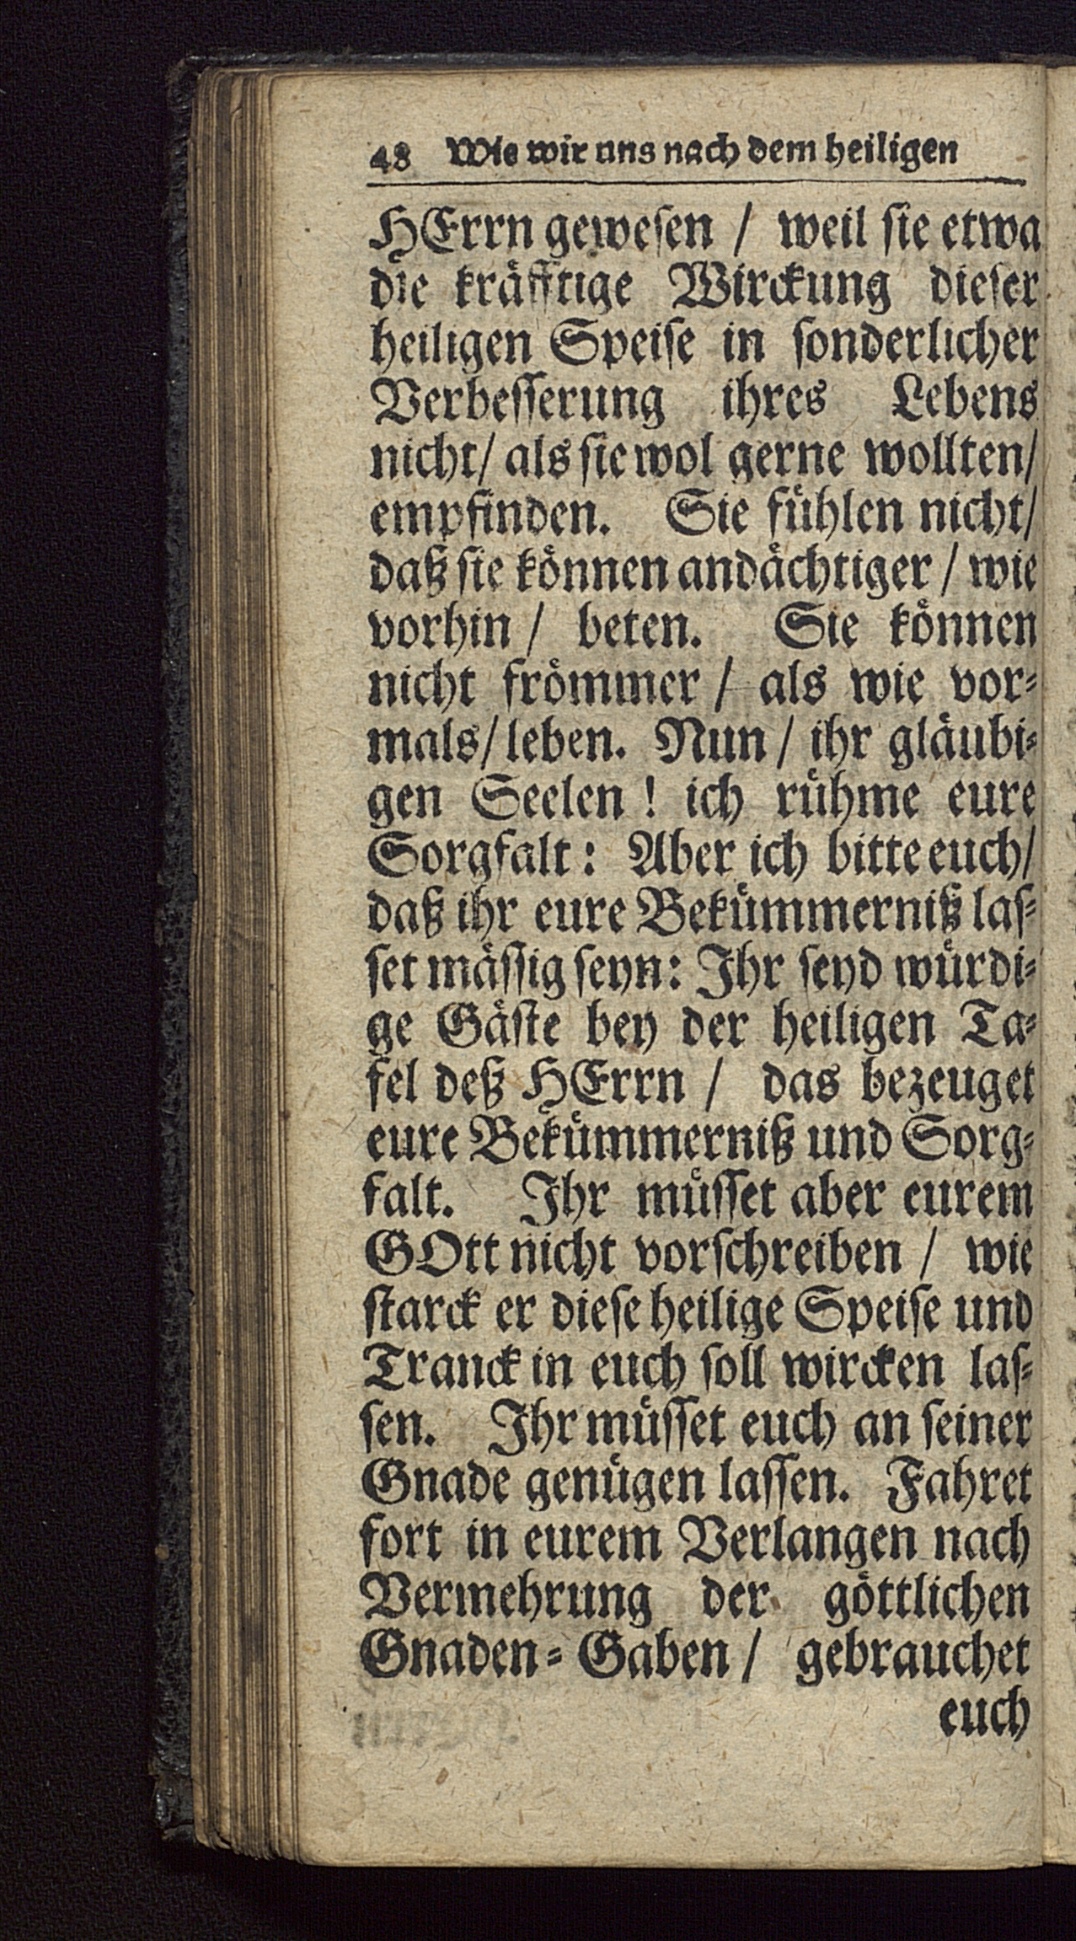 48 Wie wir uns nach dem heiligen
HErrn gewesen / weil sie etwa
die kräfftige Wirckung dieser
heiligen Speise in sonderlicher
Verbesserung ihres Lebens
nicht/ als sie wol gerne wollten/
empfinden. Sie fühlen nicht/
daß sie können andächtiger / wie
vorhin / beten. Sie können
nicht frömmer / als wie vor-
mals/ leben. Nun / ihr gläubi-
gen Seelen ! ich rühme eure
Sorgfalt: Aber ich bitte euch/
daß ihr eure Bekümmerniß las-
set mässig seyn: Ihr seyd würdi-
ge Gäste bey der heiligen Ta-
fel deß HErrn / das bezeuget
eure Bekümmerniß und Sorg-
falt. Ihr müsset aber eurem
GOtt nicht vorschreiben / wie
starck er diese heilige Speise und
Tranck in euch soll wircken las-
sen. Ihr müsset euch an seiner
Gnade genügen lassen. Fahret
fort in eurem Verlangen nach
Vermehrung der göttlichen
Gnaden-Gaben / gebrauchet
euch